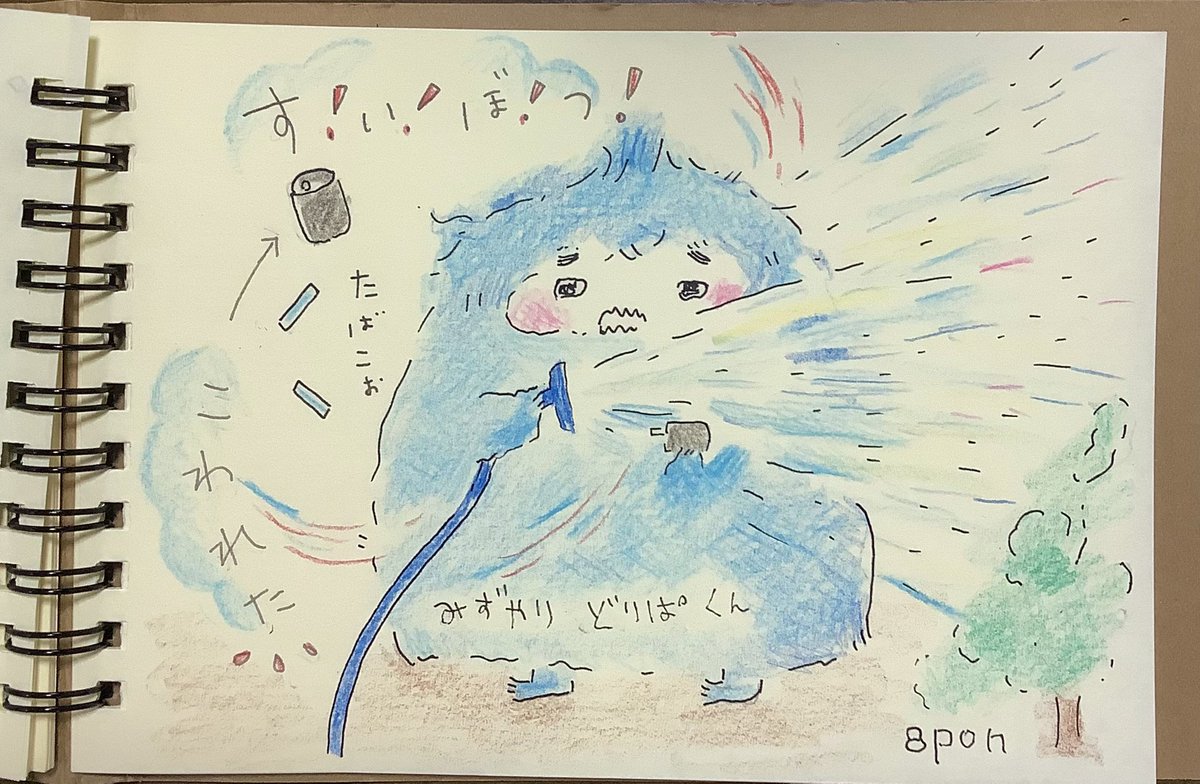 す!い!ぼ!っ!
たばこぉ
こわれた
みずやり どりぱくん
8pon